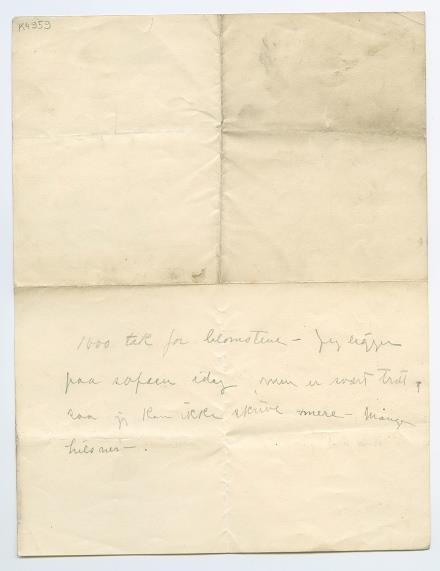 K4959
1000 tak for blomstene – Jeg ligger
paa sofaen idag men er svært træt,
saa jeg kan ikke skrive mere – Mange
hilsner – .